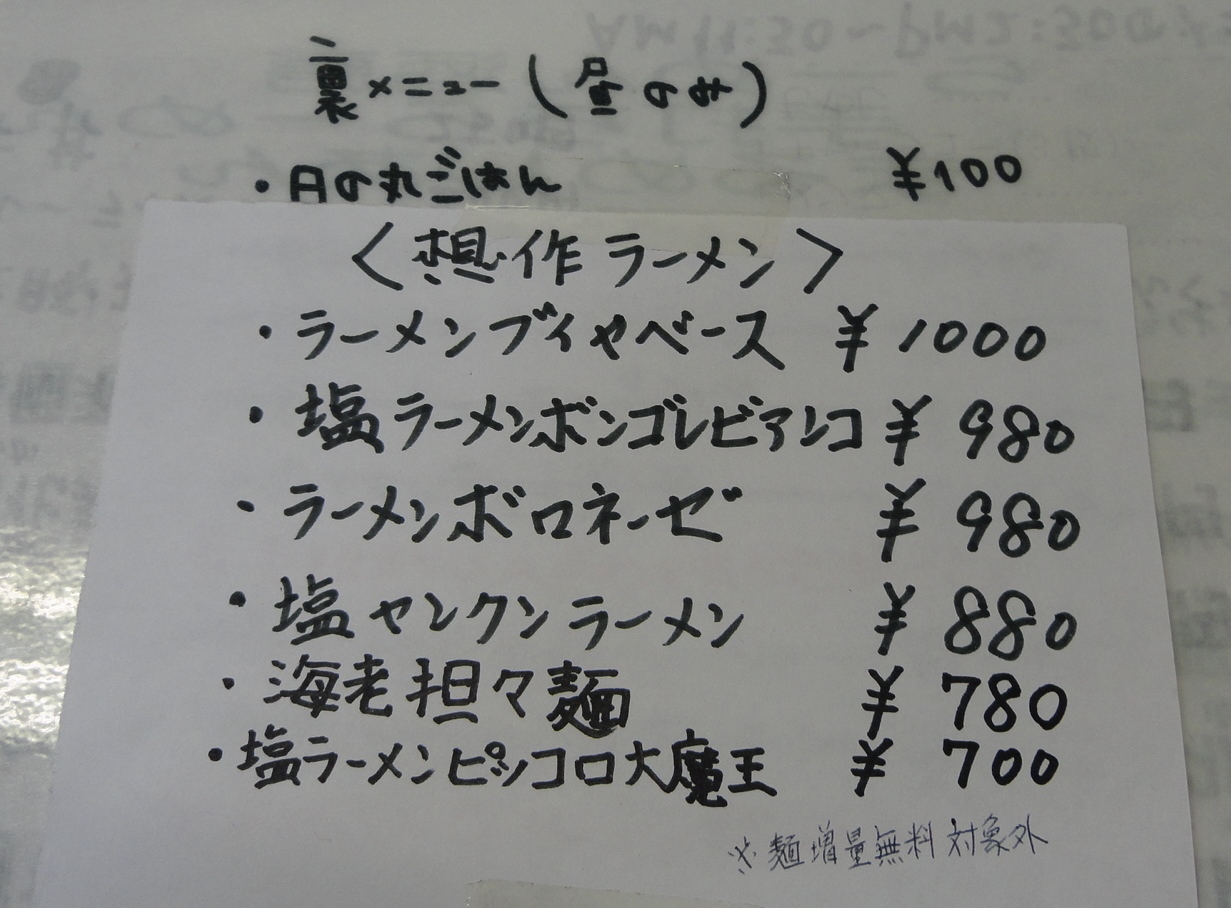 裏メニュー(昼のみ)
・日の丸ごはん ¥100
〈想作ラーメン〉
・ラーメンブイヤベース ¥1000
・塩ラーメンボンゴレビアンコ ¥980
・ラーメンボロネーゼ ¥980
・塩ヤンクンラーメン ¥880
・海老担々麺 ¥780
・塩ラーメンピッコロ大魔王 ¥700
※麺増量無料対象外